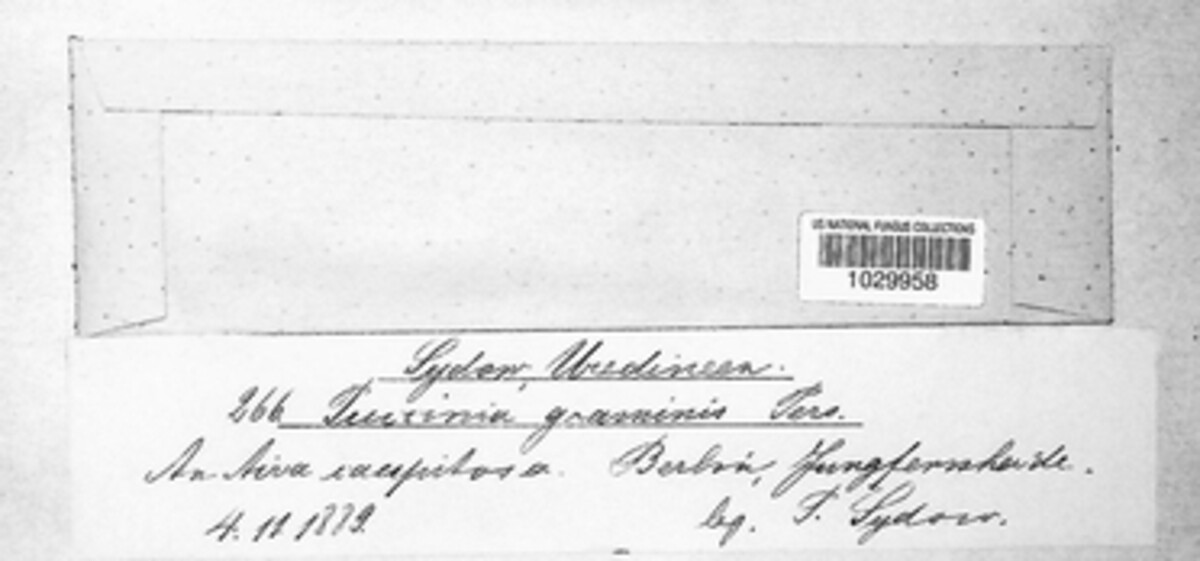 US NATIONAL FUNGUS COLLECTIONS
1029958
Sydow, Uredineen.
266 Puccinia graminis Pers.
An Aira caespitosa. Berlin, Jungfernheide.
4. 11 1889.
leg. P. Sydow.